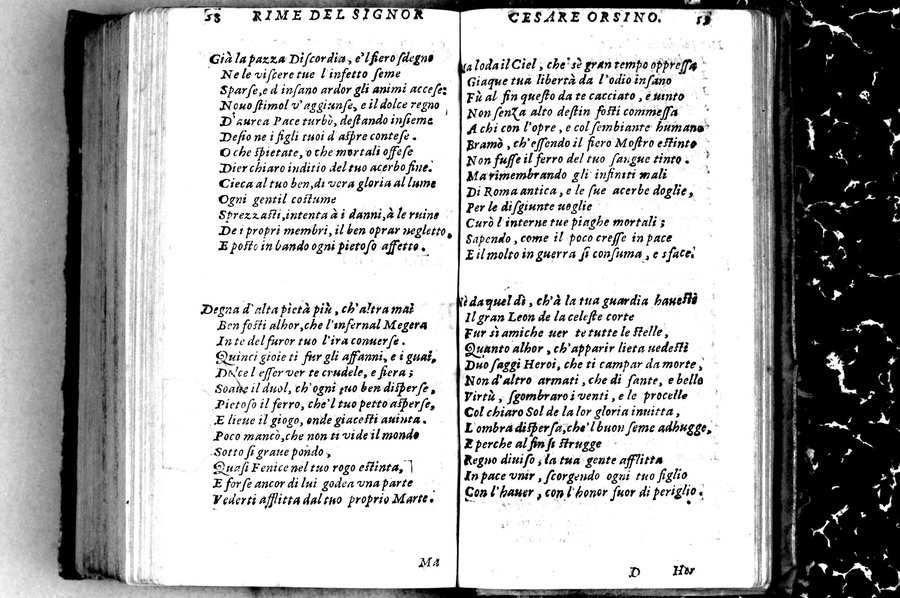 58 RIME DEL SIGNOR
Già la pazza Discordia, e'l fiero sdegno
Ne le viscere tue l'infetto seme
Sparse, e d'insano ardor gli animi accese:
Nouo stimol v'aggiunse, e il dolce regno
D'aurea Pace turbò, destando insieme
Desio ne i figli tuoi d'aspre contese.
O che spietate, o che mortali offese
Dier chiaro inditio del tuo acerbo fine.
Cieca al tuo ben, di vera gloria al lume
Ogni gentil costume
Sprezzasti, intenta à i danni, à le ruine
De i propri membri, il ben oprar negletto,
E posto in bando ogni pietoso affetto.
Degna d'alta pietà più, ch'altra mai
Ben fosti alhor, che l'infernal Megera
In te del furor tuo l'ira conuerse.
Quinci gioie ti fur gli affanni, e i guai,
Dolce l'esser ver te crudele, e fiera;
Soaue il duol, ch'ogni tuo ben disperse,
Pietoso il ferro, che'l tuo petto asperse,
E lieue il giogo, onde giacesti auinta.
Poco mancò, che non ti vide il mondo
Sotto sì graue pondo,
Quasi Fenice nel tuo rogo estinta,
E forse ancor di lui godea vna parte
Vederti afflitta dal tuo proprio Marte.
Ma
CESARE ORSINO. 59
Ma loda il Ciel, che' sè gran tempo oppressa
Giaque tua libertà da l'odio insano
Fù al fin questo da te cacciato, e uinto
Non senza alto destin fosti commessa
A chi con l'opre, e col sembiante humano
Bramò, ch'essendo il fiero Mostro estinto
Non fusse il ferro del tuo sangue tinto.
Ma rimembrando gli infiniti mali
Di Roma antica, e le sue acerbe doglie,
Per le disgiunte uoglie
Curò l'interne tue piaghe mortali;
Sapendo, come il poco cresse in pace
E il molto in guerra si consuma, e sface.
Nè da quel dì, ch'à la tua guardia hauesti
Il gran Leon de la celeste corte
Fur sì amiche uer te tutte le stelle,
Quanto alhor, ch'apparir lieta uedesti
Duo saggi Heroi, che ti campar da morte,
Non d'altro armati, che di sante, e belle
Virtù, sgombraro i venti, e le procelle
Col chiaro Sol de la lor gloria inuitta,
L'ombra dispersa, che'l buon seme adhugge,
E perche al fin si strugge
Regno diuiso, la tua gente afflitta
In pace vnir, scorgendo ogni tuo figlio
Con l'hauer, con l'honor fuor di periglio.
D Hor